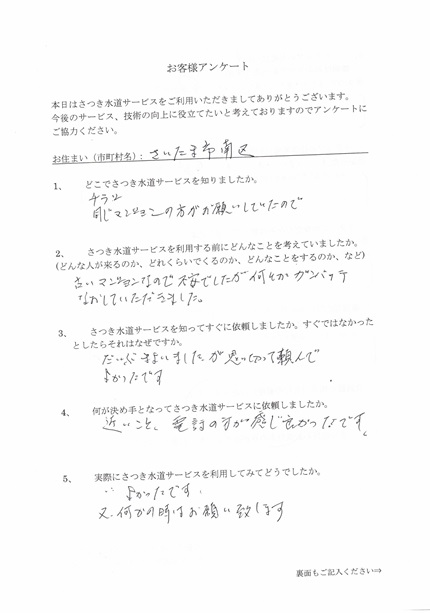 お客様アンケート
本日はさつき水道サービスをご利用いただきましてありがとうございます。
今後のサービス、技術の向上に役立てたいと考えておりますのでアンケートに
ご協力ください。
お住まい(市町村名):さいたま市南区
1、 どこでさつき水道サービスを知りましたか。
チラシ
同じマンションの方がお願いしていたので
2、 さつき水道サービスを利用する前にどんなことを考えていましたか。
(どんな人が来るのか、どれくらいでくるのか、どんなことをするのか、など)
古いマンションなので不安でしたが何とかガンバッテ
なおしていただきました。
3、 さつき水道サービスを知ってすぐに依頼しましたか。すぐではなかった
としたらそれはなぜですか。
だいぶまよいましたが思い切って頼んで
よかったです
4、 何が決め手となってさつき水道サービスに依頼しましたか。
近いこと、電話の方が感じ良かったです。
5、 実際にさつき水道サービスを利用してみてどうでしたか。
よかったです。
又、何かの時はお願い致します
裏面もご記入ください⇒